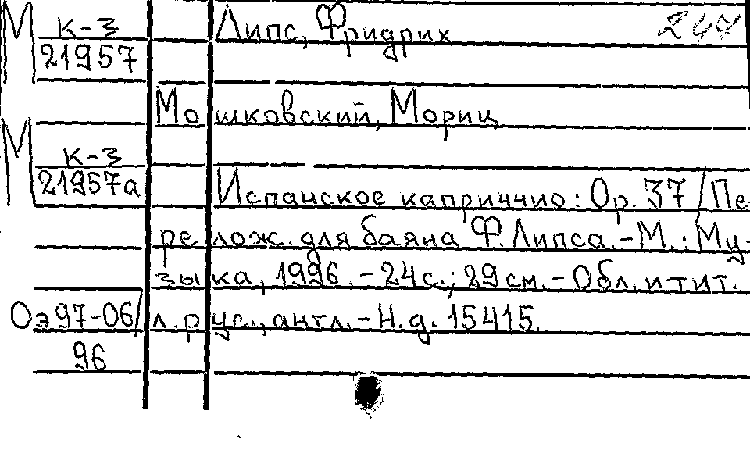 М К-3 Липс, Фридрих
21957
Мошковский, Мориц
М К-3
21957а Испанское каприччио: Ор. 37 / Пе-
релож. для баяна Ф. Липса. - М.: Му-
зыка, 1996. - 24с.; 29см. - Обл. и тит.
Оэ97-06/ л. рус., англ. - Н.д. 15415.
96